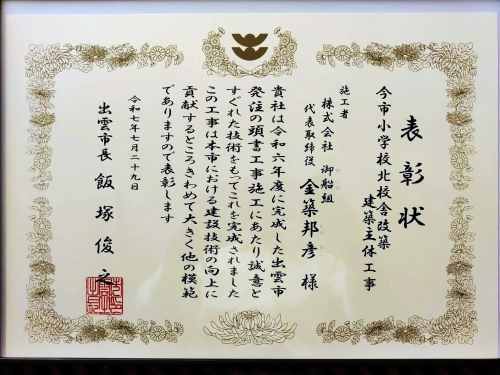 表彰状
今市小学校北校舎改築
建築主体工事
施工者
株式会社 御船組
代表取締役 金築邦彦 様
貴社は令和六年度に完成した出雲市
発注の頭書工事施工にあたり誠意と
すぐれた技術をもってこれを完成されました
この工事は本市における建設技術の向上に
貢献するところきわめて大きく他の模範
でありますので表彰します
令和七年七月二十九日
出雲市長 飯塚俊之